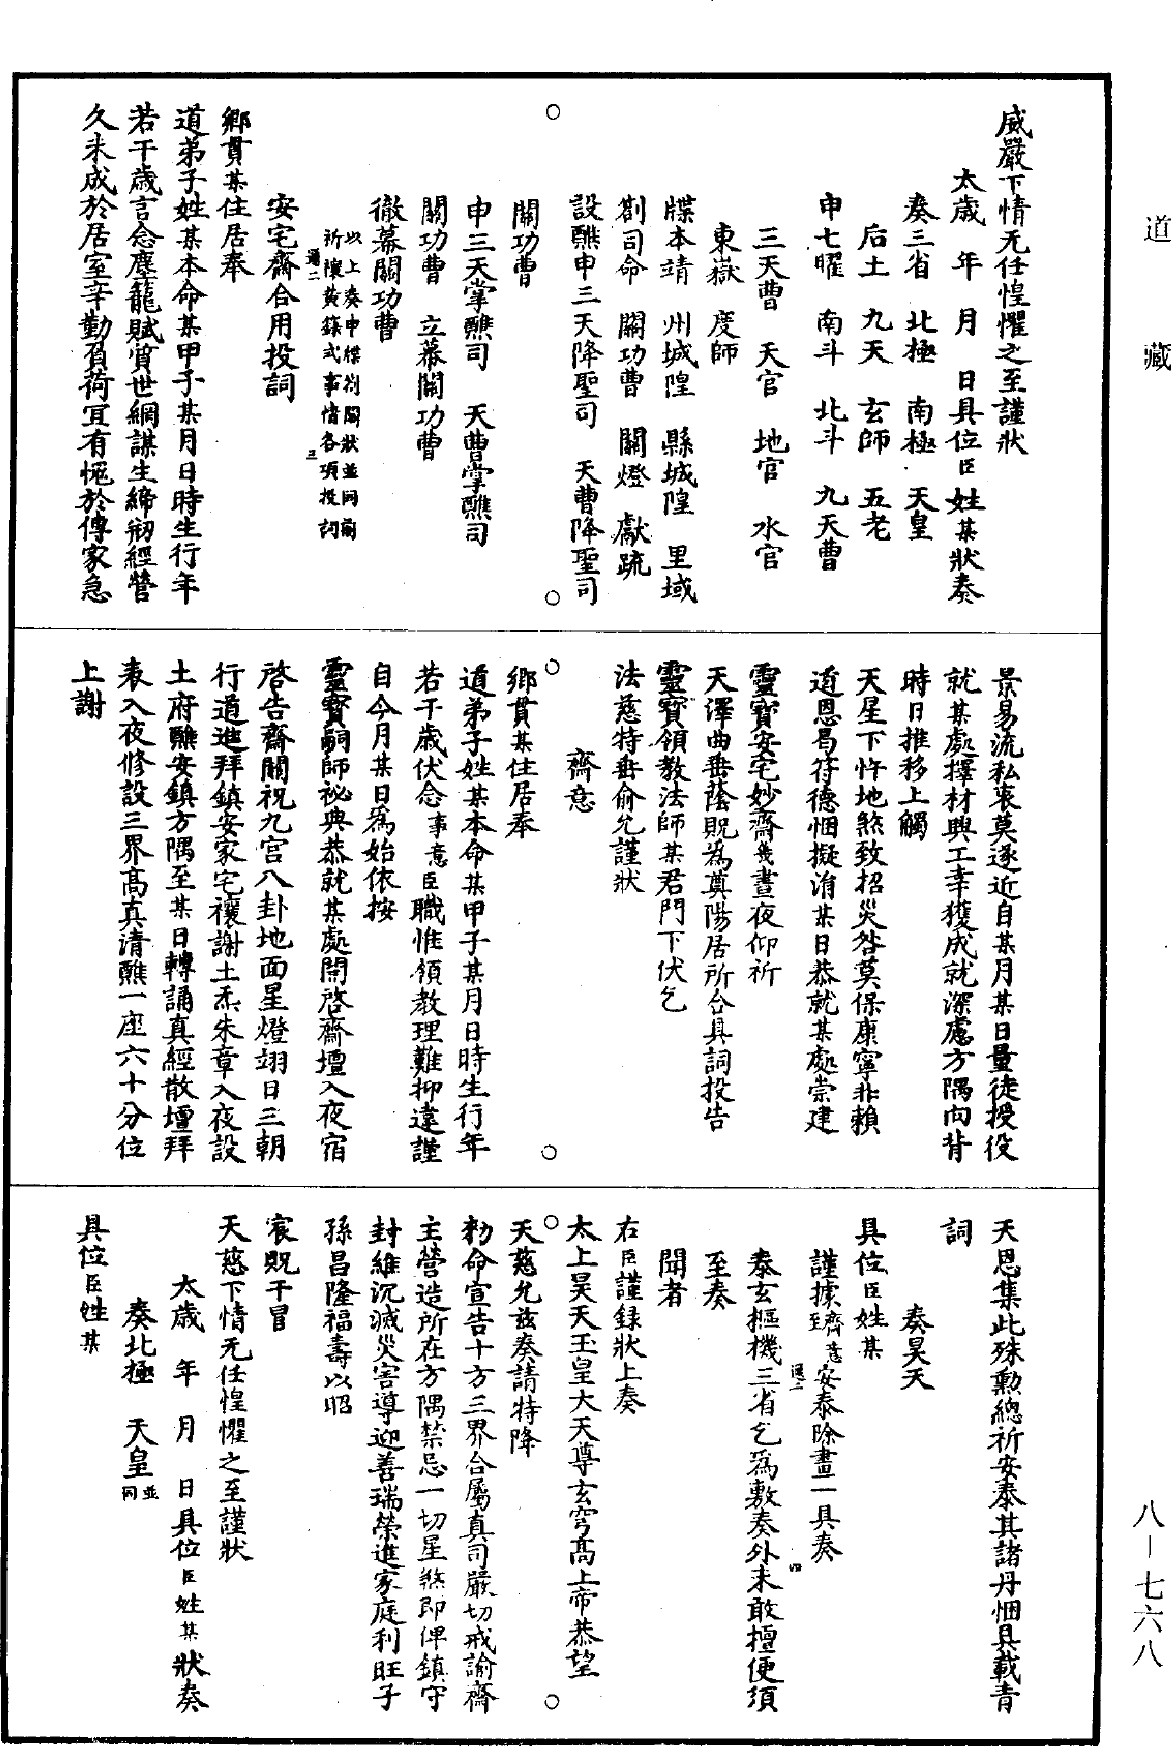 道藏
威嚴下情无任惶懼之至謹狀
太歲　年　月　日具位臣姓某狀奏
奏三省　北極　南極　天皇
后土　九天　玄師　五老
申七曜　南斗　北斗　九天曹
三天曹　天官　地官　水官
東嶽　度師
牒本靖　州城隍　縣城隍　里域
劄司命　關功曹　關燈　獻疏
設醮申三天降聖司　天曹降聖司
○　○
關功曹
申三天掌醮司　天曹掌醮司
關功曹　立幕關功曹
徹幕關功曹
以上奏申牒劄關狀並同前
祈禳黃籙式事情各項投詞
安宅齋合用投詞
鄉貫某住居奉
道弟子姓某本命某甲子某月日時生行年
若干歲言念塵籠賦質世網謀生締刱經營
久未成於居室辛勤負荷冝有愧於傳家急
景易流私衷莫遂近自某月某日量徒授役
就某處擇材興工幸獲成就深慮方隅向背
時日推移上觸
天星下忤地煞致招災咎莫保康寧非賴
道恩曷符德悃擬涓某日恭就某處崇建
靈寶安宅妙齋幾晝夜仰祈
天澤曲垂蔭貺為奠陽居所合具詞投告
靈寶領教法師某君門下伏乞
法慈特垂俞允謹狀
齋意
○　○
鄉貫某住居奉
道弟子姓某本命某甲子某月日時生行年
若干歲伏念事意臣職惟領教理難抑違謹
自今月某日為始依按
靈寶嗣師祕典恭就某處開啓齋壇入夜宿
啓告齋關祝九宮八卦地面星燈翊日三朝
行道進拜鎮安家宅禳謝土炁朱章入夜設
土府醮安鎮方隅至某日轉誦真經散壇拜
表入夜修設三界高真清醮一座六十分位
上謝
天恩集此殊勳總祈安泰其諸丹悃具載青
詞
奏昊天
具位臣姓某
謹據齋意至安泰除晝一具奏
泰玄樞機三省乞為敷奏外未敢擅便須
至奏
聞者
右臣謹録狀上奏
太上昊天玉皇大天尊玄穹高上帝恭望
○　○
天慈允兹奏請特降
勑命宣告十方三界合屬真司嚴切戒諭齋
主營造所在方隅禁忌一切星煞即俾鎮守
封維沉滅災害導迎善瑞榮進家庭利旺子
孫昌隆福壽以昭
宸貺干冒
天慈下情无任惶懼之至謹狀
太歲　年　月　日具位臣姓某狀奏
奏北極　天皇並同
具位臣姓某
八—七六八